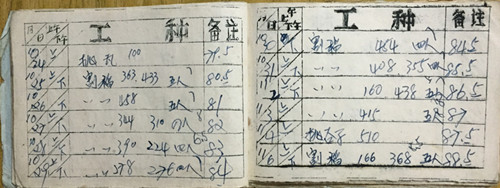 日 上午 下午 工 种 备注
10/24 上 下 挑 100 79.5
10/25 上 下 割稻 363.433 五人 80.5
10/26 上 下 〃 〃 458 五人 81
10/27 上 下 〃 〃 344 310 四人 82
10/28 上 下 〃 〃 390 224 四人 83
10/29 上 下 〃 〃 378 276 四人 84
日 上午 下午 工 种 备注
10/30 割稻 464 四人 84.5
10/31 上 下 〃 〃 408 355 四人 85.5
11/2 上 下 〃 〃 160 438 五人 86.5
11/3 上 下 〃 〃 415 五人 87
11/4 上 下 挑 510 87.5
11/6 上 下 割稻 166 368 五人 88.5